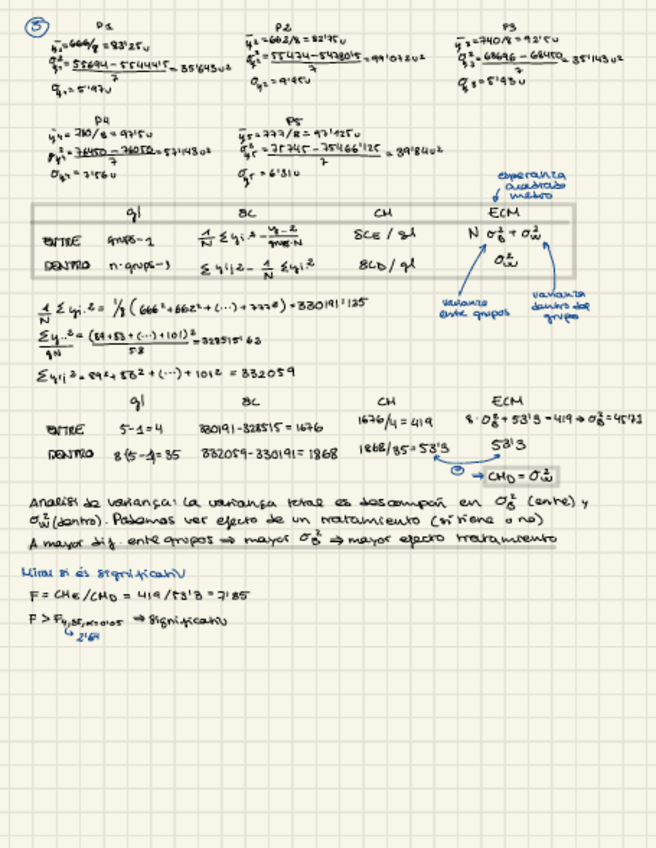 ③
P1
ȳ₁=666/8=83'25u
σ²y₁=55694-55444'5/7=35'643u²
σy₁=5'97u
P2
ȳ₂=662/8=82'75u
σ²y₂=55474-54780'5/7=99'072u²
σy₂=9'95u
P3
ȳ₃=740/8=92'5u
σ²y₃=68696-68450/7=35'143u²
σy₃=5'93u
P4
ȳ₄=780/8=97'5u
σ²y₄=76450-76050/7=57'143u²
σy₄=7'56u
P5
ȳ₅=777/8=97'125u
σ²y₅=75745-75466'125/7=39'84u²
σy₅=6'31u
esperanza
cuadrado
metro
gl SC CM ECM
ENTRE grups-1 1/N Σyi.²- SCE/gl N σ²B+σ²W
DENTRO n-grups-1 Σyij²-1/N Σyi.² SCD/gl σ²W
varianza
entre grupos
varianza
dentro dos
grupos
1/N Σyi.²=1/8(666²+662²+(...)+777²)=330191'125
Σy..²/gN=(89+83+(...)+101)²/5·8=328515'63
Σyij²=89²+83²+(...)+101²=332059
gl SC CM ECM
ENTRE 5-1=4 330191-328515=1676 1676/4=419 8·σ²B+53'3=419→σ²B=45'71
DENTRO 8(5-1)=35 332059-330191=1868 1868/35=53'3 53'3
→ CMD=σ²W
Análisi de variança: la variança total es descompañ en σ²B (entre) y
σ²W (dentro). Podemos ver efecto de un tratamiento (si tiene o no)
A mayor dif. entre grupos ⇒ mayor σ²B ⇒ mayor efecto tratamiento
Mirar si és significatiu
F=CME/CMD=419/53'3=7'85
F>F4,35,α=0'05 ⇒ significatiu
2'64